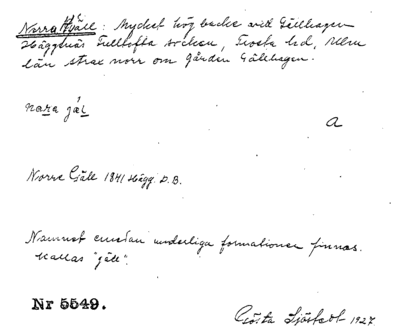 Norra Gjäll: Mycket hög backe vid Gällhagen
Häggenäs Fulltofta socken, Frosta hd, Mlm
län strax norr om gården Gällhagen.
nara gäl
a
Norre Gjäll 1841 Hägg. D.B.
Namnet emedan underliga formationer finnas.
Kallas "gjäll".
Nr 5549.
Gösta Sjöstedt 1927